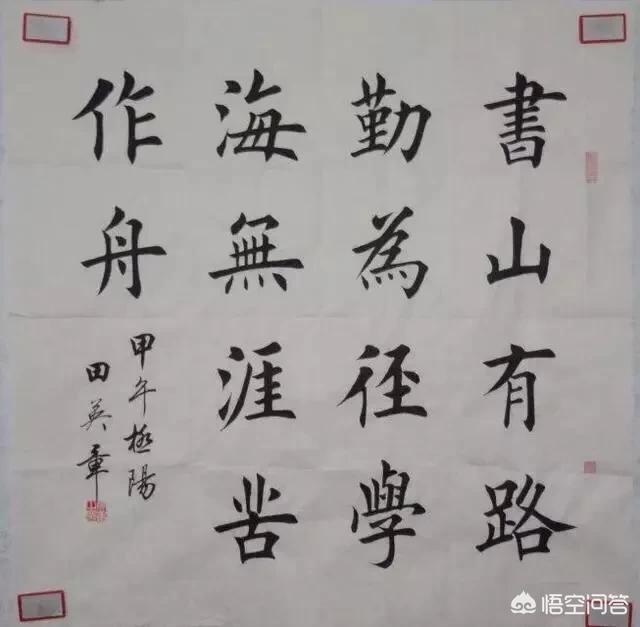 書山有路
勤為徑學
海無涯苦
作舟
甲午極陽
田英章
悟空问答